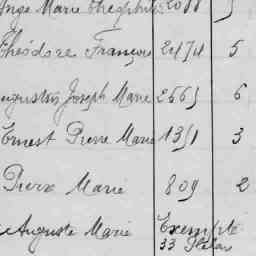 Ange Marie Théophile
Théodore François 2474 5
Augustin Joseph Marie 2565 6
Ernest Pierre Marie 1351 3
Pierre Marie 809 2
Auguste Marie Exempté
33